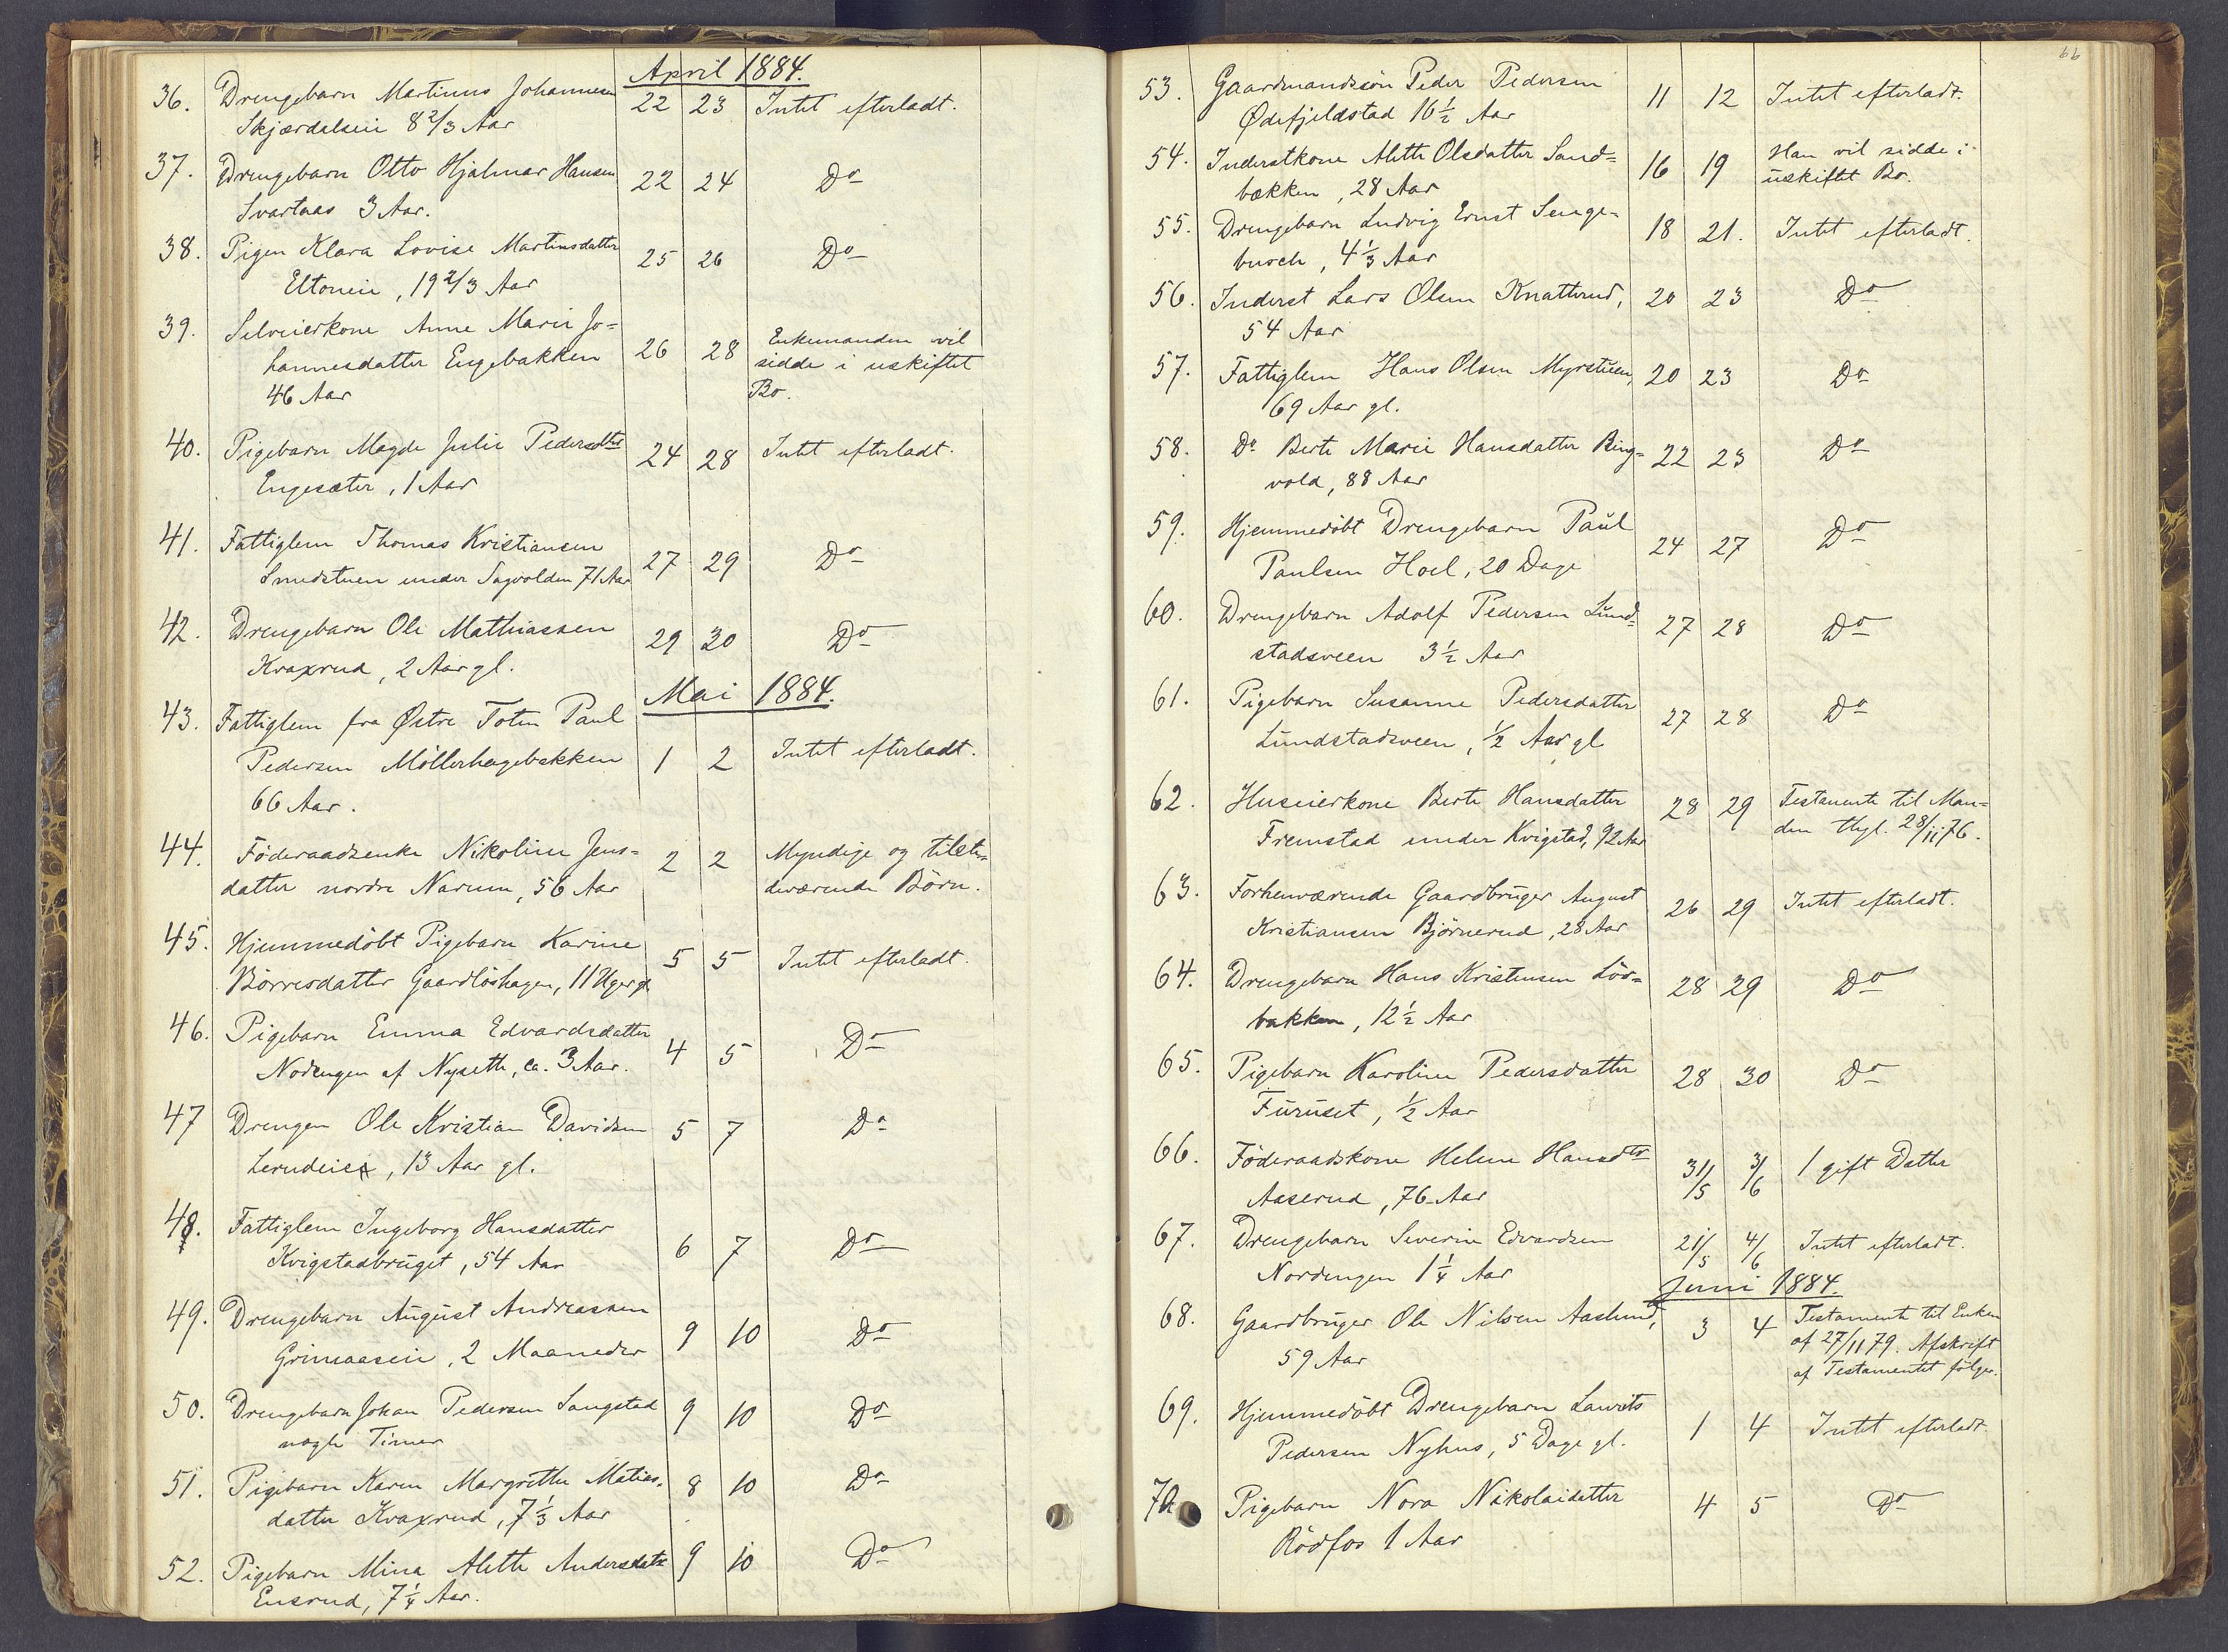 April 1884.
36. Drengebarn Martinus Johannesen 22 23 Intet efterladt.
Skjærdalseie 8 2/3 Aar
37. Drengebarn Otto Hjalmar Hansen 22 24 Do
Svartaas 3 Aar.
38. Pigen Klara Lovise Martinsdatter 25 26 Do
Eltoneie, 19 2/3 Aar
39. Selveierkone Anne Marie Jo= 26 28 Enkemanden vil
hannesdatter Engebakken sidde i uskiftet
46 Aar Bo.
40. Pigebarn Magde Julie Pedersdtr 24 28 Intet efterladt.
Engesæter, 1 Aar
41. Fattiglem Thomas Kristiansen 27 29 Do
Smedstuen under Sagvolden 71 Aar
42. Drengebarn Ole Mathiassen 29 30 Do
Kraxrud, 2 Aar gl.
Mai 1884.
43. Fattiglem fra Østre Toten Paul
Pedersen Möllerhagebakken 1 2 Intet efterladt.
66 Aar.
44. Föderaadsenke Nikoline Jens= 2 2 Myndige og tilste=
datter nordre Narum, 56 Aar deværende Börn.
45. Hjemmedöbt Pigebarn Karine 5 5 Intet efterladt.
Börresdatter Gaardlöshagen, 11 Uger gl.
46. Pigebarn Emma Edvardsdatter 4 5 Do
Nordengen af Nyseth, ca. 3 Aar.
47 Drengen Ole Kristian Davidsen 5 7 Do
Lerudeie, 13 Aar gl.
48. Fattiglem Ingeborg Hansdatter 6 7 Do
Kvigstadbruget, 54 Aar
49. Drengebarn August Andreassen 9 10 Do
Grimaaseie, 2 Maaneder
50. Drengebarn Johan Pedersen Sangstad 9 10 Do
nogle Timer
51. Pigebarn Karen Margrethe Matias= 8 10 Do
datter Kraxrud, 7 1/3 Aar
52. Pigebarn Mina Alethe Andersdatr 9 10 Do
Ensrud, 7 1/4 Aar.
66
53. Gaardmandssön Peder Pedersen 11 12 Intet efterladt.
Ødefjeldstad 16 1/2 Aar
54. Inderstkone Alethe Olsdatter Sand= 16 19 Han vil sidde i
bækken, 28 Aar uskiftet Bo.
55. Drengebarn Ludvig Ernst Senge= 18 21. Intet efterladt.
busch, 4 1/3 Aar
56. Inderst Lars Olsen Knatterud, 20 23 Do
54 Aar
57. Fattiglem Hans Olsen Myrstuen, 20 23 Do
69 Aar gl.
58. Do Berte Marie Hansdatter Ring= 22 23 Do
vold, 88 Aar
59. Hjemmedöbt Drengebarn Paul 24 27 Do
Paulsen Hoel, 20 Dage
60. Drengebarn Adolf Pedersen Lund= 27 28 Do
stadsveen 3 1/2 Aar
61. Pigebarn Susanne Pedersdatter 27 28 Do
Lundstadsveen, 1/2 Aar gl
62. Huseierkone Berte Hansdatter 28 29 Testamente til Man=
Fremstad under Kvigstad, 92 Aar den thgl. 28/11 76.
63. Forhenværende Gaardbruger August 26 29 Intet efterladt.
Kristiansen Björnerud, 28 Aar
64. Drengebarn Hans Kristensen Lör= 28 29 Do
bakken, 12 1/2 Aar
65. Pigebarn Karoline Pedersdatter 28 30 Do
Furuset, 1/2 Aar
66. Föderaadskone Helene Hansdtr 31/5 3/6 1 gift Datter
Aaserud, 76 Aar
67. Drengebarn Severin Edvardsen 21/5 4/6 Intet efterladt.
Nordengen 1 1/4 Aar
Juni 1884.
68. Gaardbruger Ole Nilsen Aaslund, 3 4 Testamente til Enken
59 Aar af 27/11 79. Afskrift
af Testamentet fölger.
69. Hjemmedöbt Drengebarn Laurits 1 4 Intet efterladt
Pedersen Nyhus, 5 Dage gl.
70 Pigebarn Nora Nikolaidatter 4 5 Do
Rödfos 1 Aar